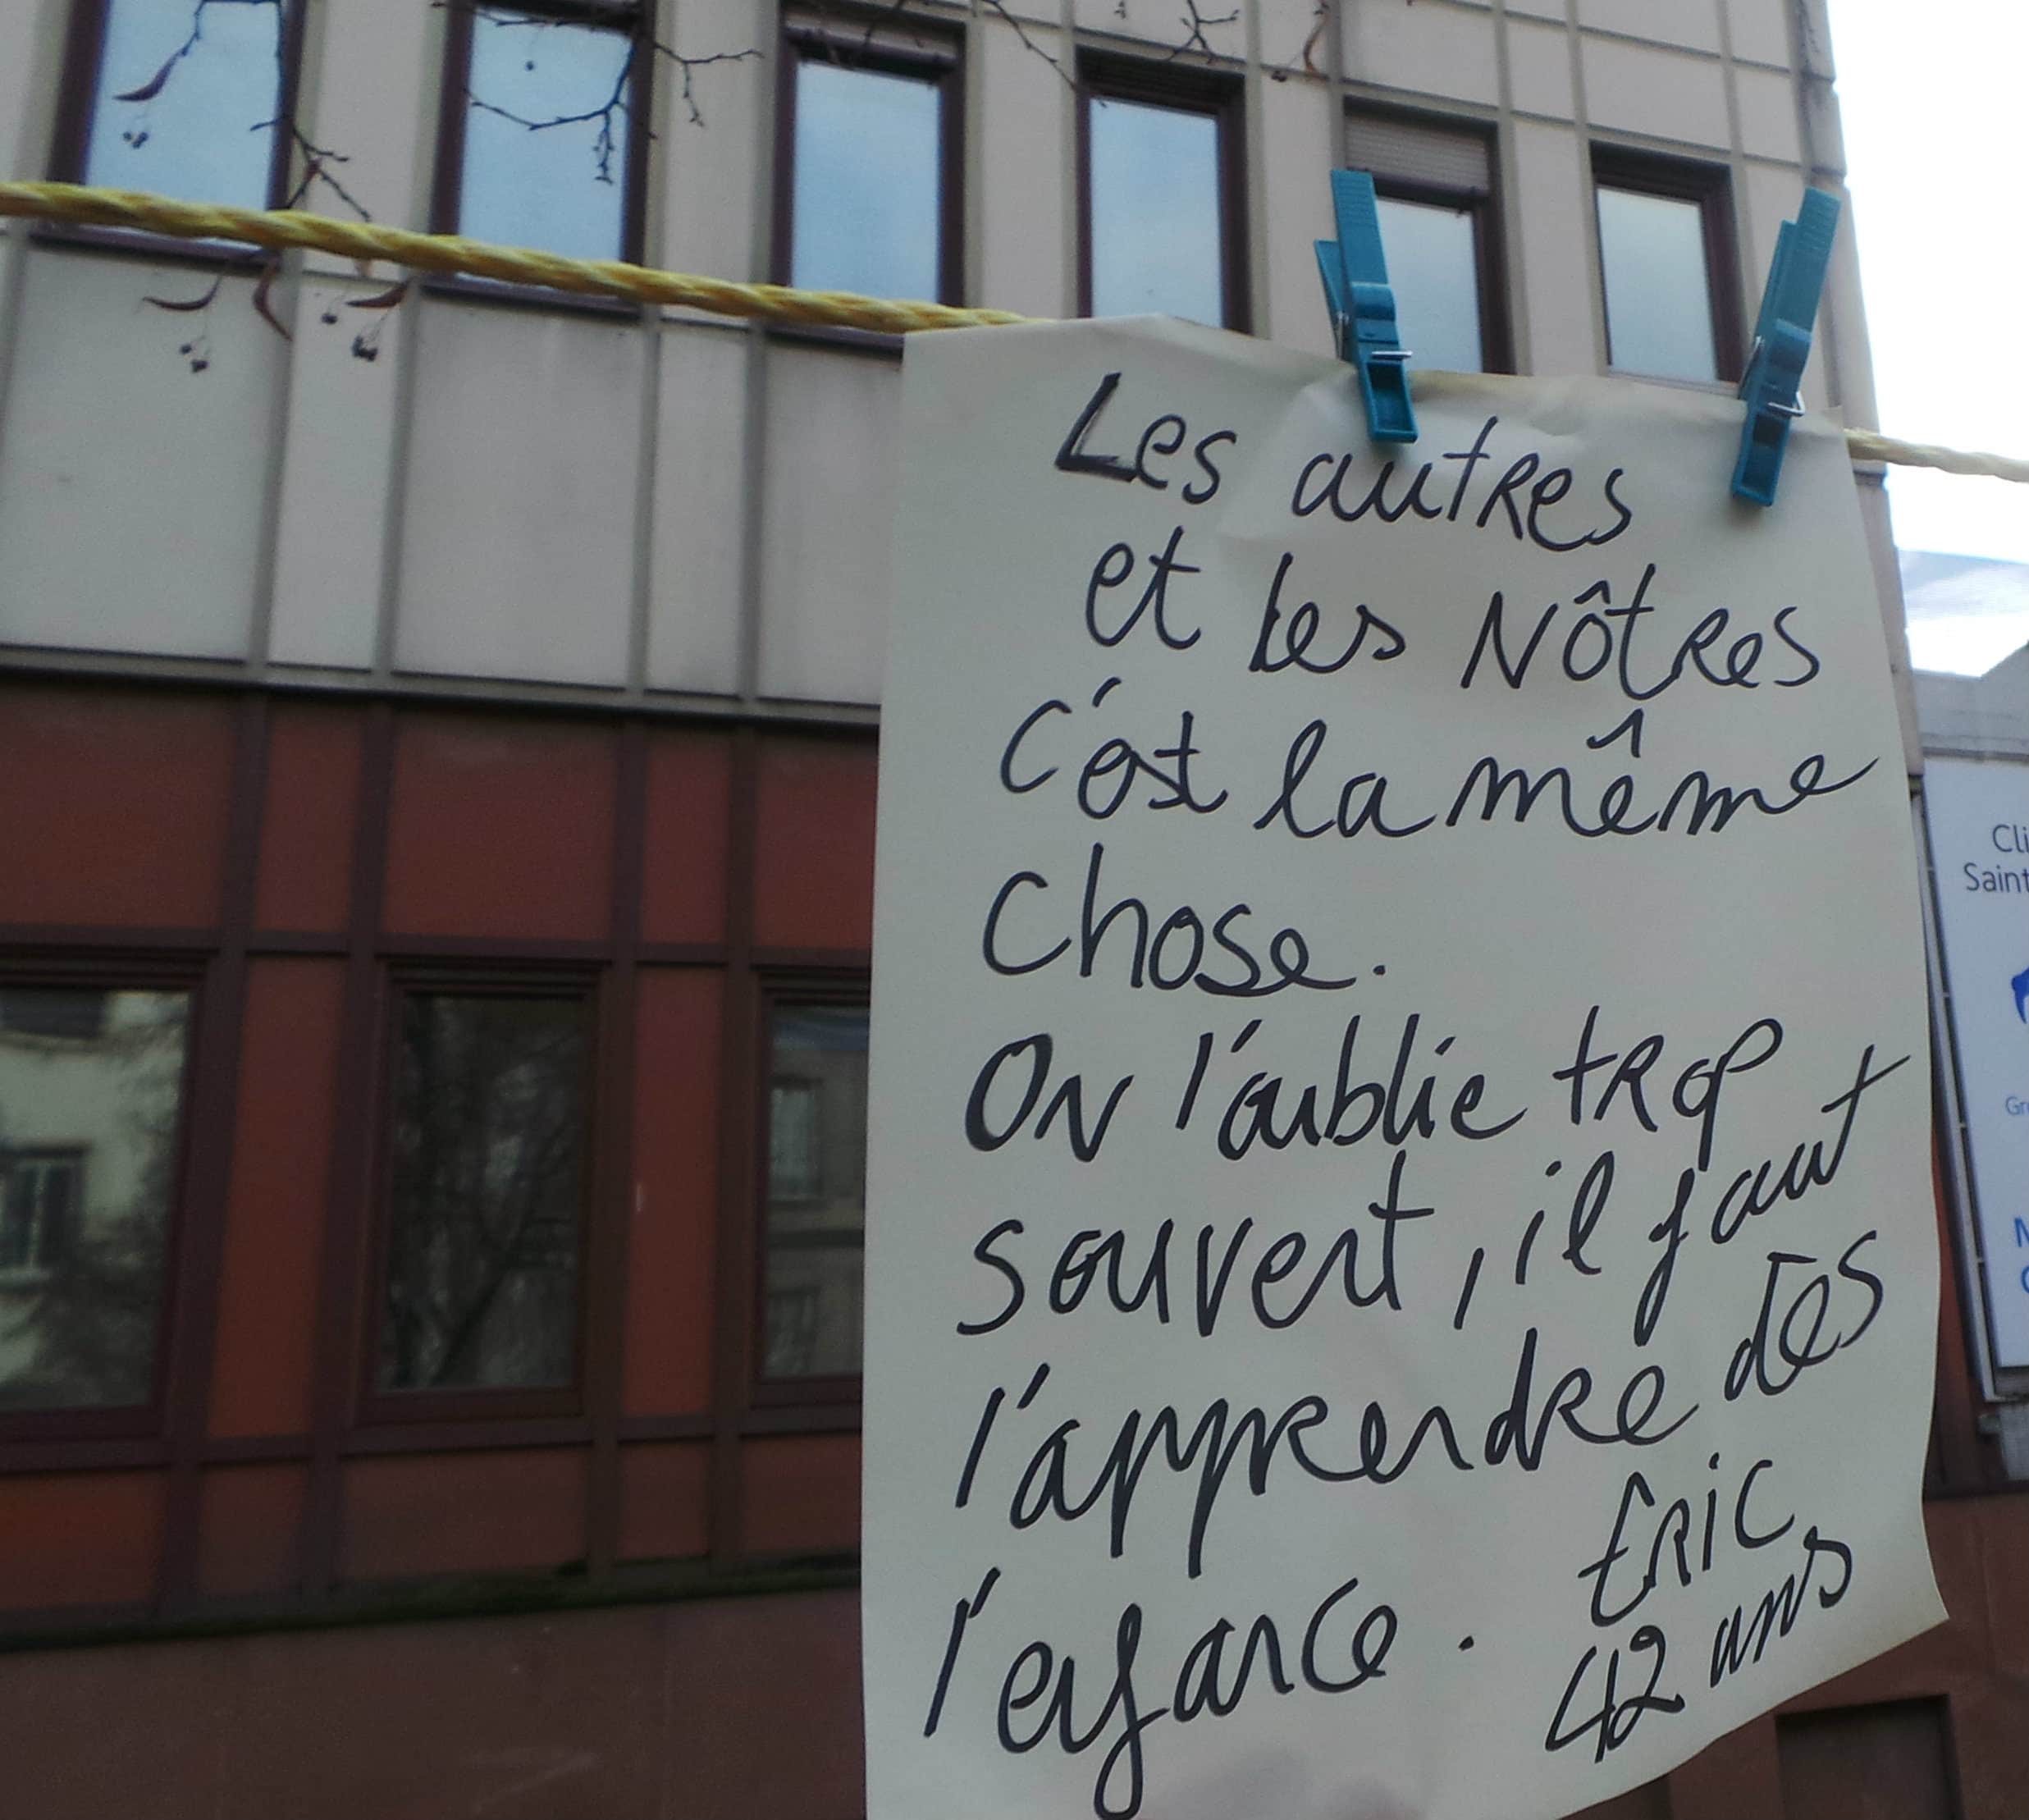 Les autres
et les Nôtres
c'est la même
chose.
On l'oublie trop
souvent, il faut
l'apprendre dès
l'enfance.
Eric
42 ans
Cli
Saint